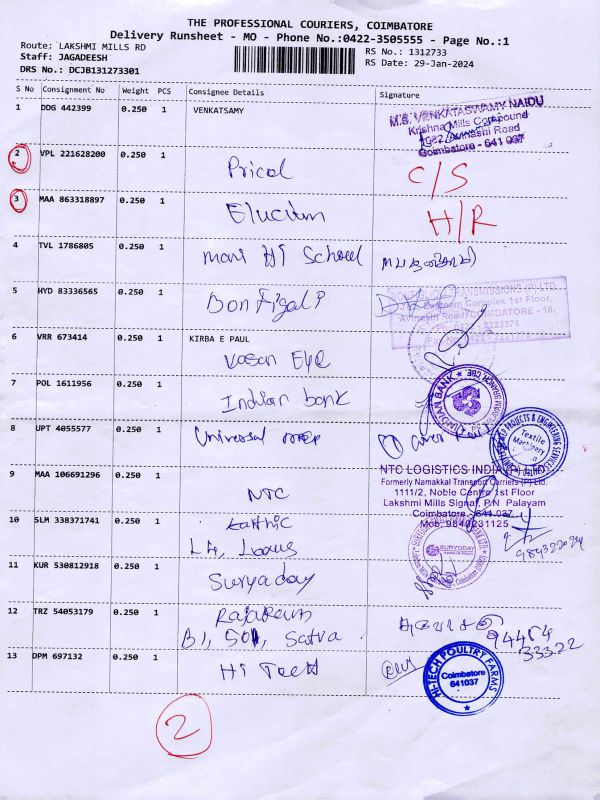 THE PROFESSIONAL COURIERS, COIMBATORE
Delivery Runsheet - MO - Phone No.:0422-3505555 - Page No.:1
Route: LAKSHMI MILLS RD
RS No.: 1312733
Staff: JAGADEESH
RS Date: 29-Jan-2024
DRS No.: DCJB131273301
S No Consignment No Weight PCS Consignee Details Signature
1 DDG 442399 0.250 1 VENKATSAMY
M.S. VENKATASWAMY NAIDU
Krishna Mills Compound
Avinashi Road
Coimbatore - 641 037
2 VPL 221628200 0.250 1
Pricol C/S
3 MAA 863318897 0.250 1
Elucitm H/R
4 TVL 1786805 0.250 1
mani Hi School
5 HYD 83336565 0.250 1
Bonfigali P
Complex 1st Floor,
Avinashi Road, COIMBATORE - 18.
6 VRR 673414 0.250 1 KIRBA E PAUL
Vasan Eye
7 POL 1611956 0.250 1
Indian bank
INDIAN BANK
8 UPT 4055577 0.250 1
Universal
PROJECTS & ENGINEERING SERVICES
Textile
Machinery
9 MAA 106691296 0.250 1
NTC
NTC LOGISTICS INDIA (P) LTD
Formerly Namakkal Transport Carriers (P) Ltd.
1111/2, Noble Centre 1st Floor
Lakshmi Mills Signal, P.N. Palayam
Coimbatore - 641 037
Mob: 9840231125
10 SLM 338371741 0.250 1
Karthic
L4, Lotus
11 KUR 530812918 0.250 1
Suryaday
SURYODAY
12 TRZ 54053179 0.250 1
Rajaram
B1, 501, Satva
94454
33322
13 DPM 697132 0.250 1
Hi Tech
HI-TECH POULTRY FARMS
Coimbatore
641037
2